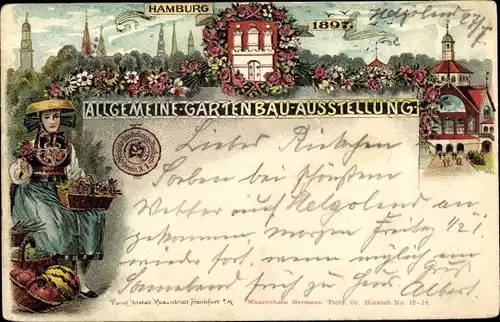 HAMBURG
1897.
Helgoland
ALLGEMEINE-GARTENBAU-AUSSTELLUNG.
Lieber
Soeben bei schönstem
Wetter auf Helgoland an
gekommen, morgen Freitag 1/2
wieder fort, wenn möglich am
Sonnabend früh zu Hause
Albert
Kunst Anstalt Rosenblatt Frankfurt a/M.
Waarenhaus Hermann Tietz, Gr. Burstah No. 12-14.